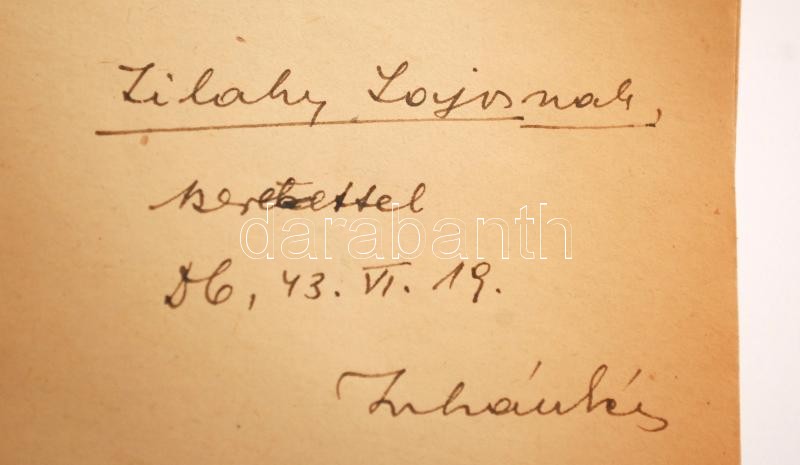 Zilahy Lajosnak,
szeretettel
darabanth
Db, 43. VI. 19.
Juhász Géza